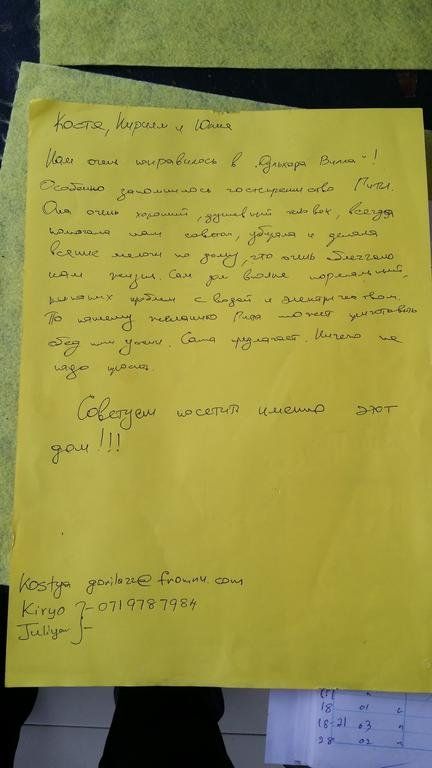 Костя, Кирилл и Юлия
Нам очень понравилось в "Вилла"!
Особенно запомнилось гостеприимство
Она очень хороший, душевный человек, всегда
помогала нам советом, убирала и делала
всякие мелочи по дому, что очень облегчало
нам жизнь. Сам дом вполне нормальный,
никаких проблем с водой и электричеством.
По нашему желанию может приготовить
обед или ужин. Сама предлагает. Ничего не
надо просить.
Советуем посетить именно этот
дом!!!
Kostya
Kiryo } - 0719787984
Juliya -
18 01
18-21 03
28 02